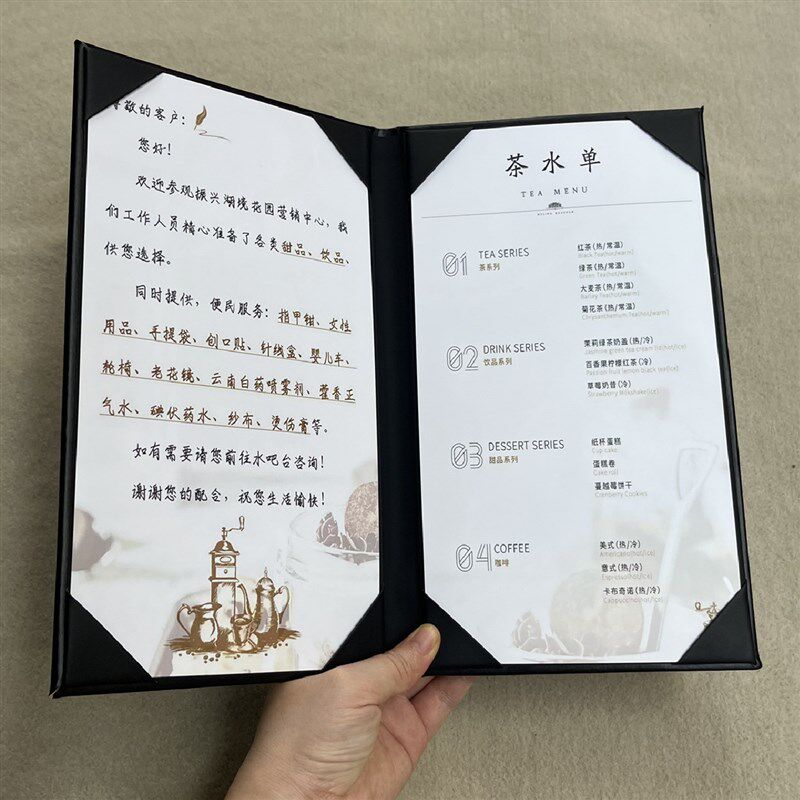 尊敬的客户：
您好！
欢迎参观振兴湖境花园营销中心，我
们工作人员精心准备了各类甜品、饮品，
供您选择。
同时提供，便民服务：指甲钳、女性
用品、手提袋、创口贴、针线盒、婴儿车、
轮椅、老花镜、云南白药喷雾剂、藿香正
气水、碘伏药水、纱布、烫伤膏等。
如有需要请您前往水吧台咨询！
谢谢您的配合，祝您生活愉快！
茶水单
TEA MENU
01 TEA SERIES
茶系列
红茶(热/常温)
Black Tea(hot/warm)
绿茶(热/常温)
Green Tea(hot/warm)
大麦茶(热/常温)
Barley Tea(hot/warm)
菊花茶(热/常温)
Chrysanthemum Tea(hot/warm)
02 DRINK SERIES
饮品系列
茉莉绿茶奶盖(热/冷)
Jasmine green tea cream lid(hot/ice)
百香果柠檬红茶(热/冷)
Passion fruit lemon black tea(ice)
草莓奶昔(冷)
Strawberry Milkshake(ice)
03 DESSERT SERIES
甜品系列
纸杯蛋糕
Cup cake
蛋糕卷
Cake roll
蔓越莓饼干
Cranberry Cookies
04 COFFEE
咖啡
美式(热/冷)
Americano(hot/ice)
意式(热/冷)
Espresso(hot/ice)
卡布奇诺(热/冷)
Cappuccino(hot/ice)